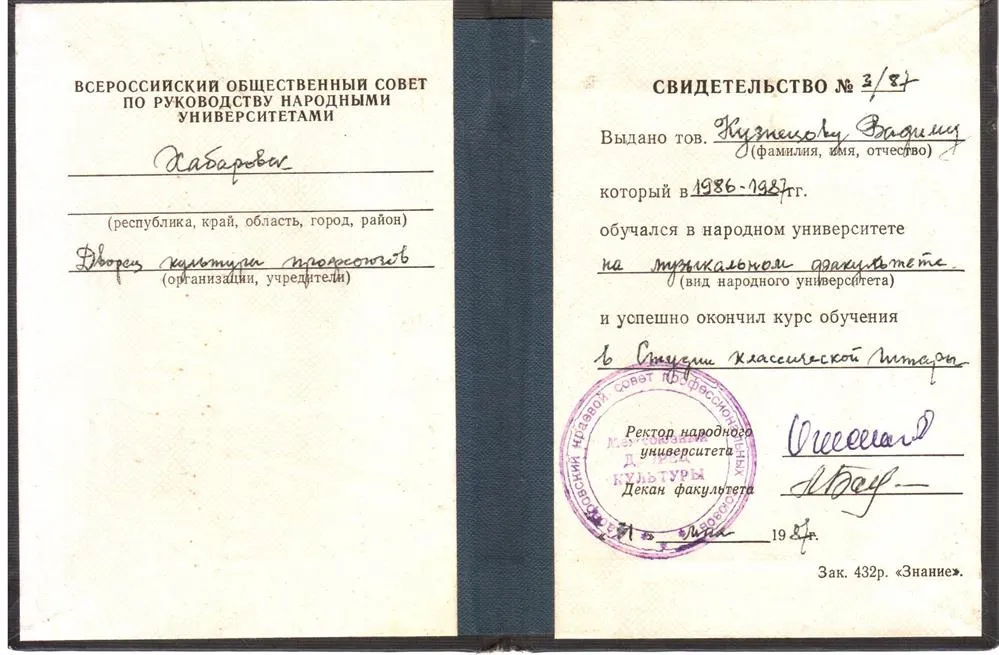 ВСЕРОССИЙСКИЙ ОБЩЕСТВЕННЫЙ СОВЕТ
ПО РУКОВОДСТВУ НАРОДНЫМИ
УНИВЕРСИТЕТАМИ
Хабаровск
(республика, край, область, город, район)
Дворец культуры профсоюзов
(организации, учредители)
СВИДЕТЕЛЬСТВО № 3/87
Выдано тов. Кузнецову Вадиму
(фамилия, имя, отчество)
который в 1986-1987гг.
обучался в народном университете
на музыкальном факультете.
(вид народного университета)
и успешно окончил курс обучения
в Студии классической гитары
Хабаровский краевой совет профессиональных союзов
Межсоюзный
ДВОРЕЦ
КУЛЬТУРЫ
Ректор народного
университета
Декан факультета
мая 1987г.
Зак. 432р. «Знание».